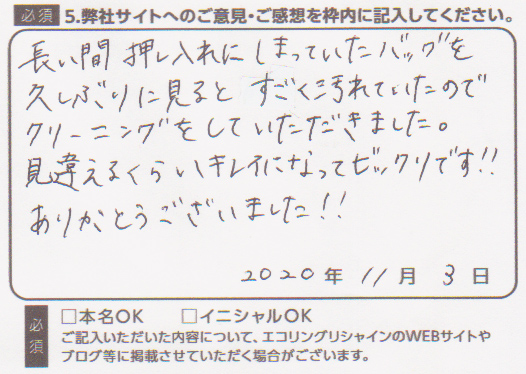 必須 5.弊社サイトへのご意見・ご感想を枠内に記入してください。
長い間 押し入れに しまっていたバッグを
久しぶりに見ると すごく汚れていたので
クリーニングをしていただきました。
見違えるくらいキレイになってビックリです!!
ありがとうございました!!
2020年 11月 3日
必須 □本名OK □イニシャルOK
ご記入いただいた内容について、エコリングリシャインのWEBサイトや
ブログ等に掲載させていただく場合がございます。